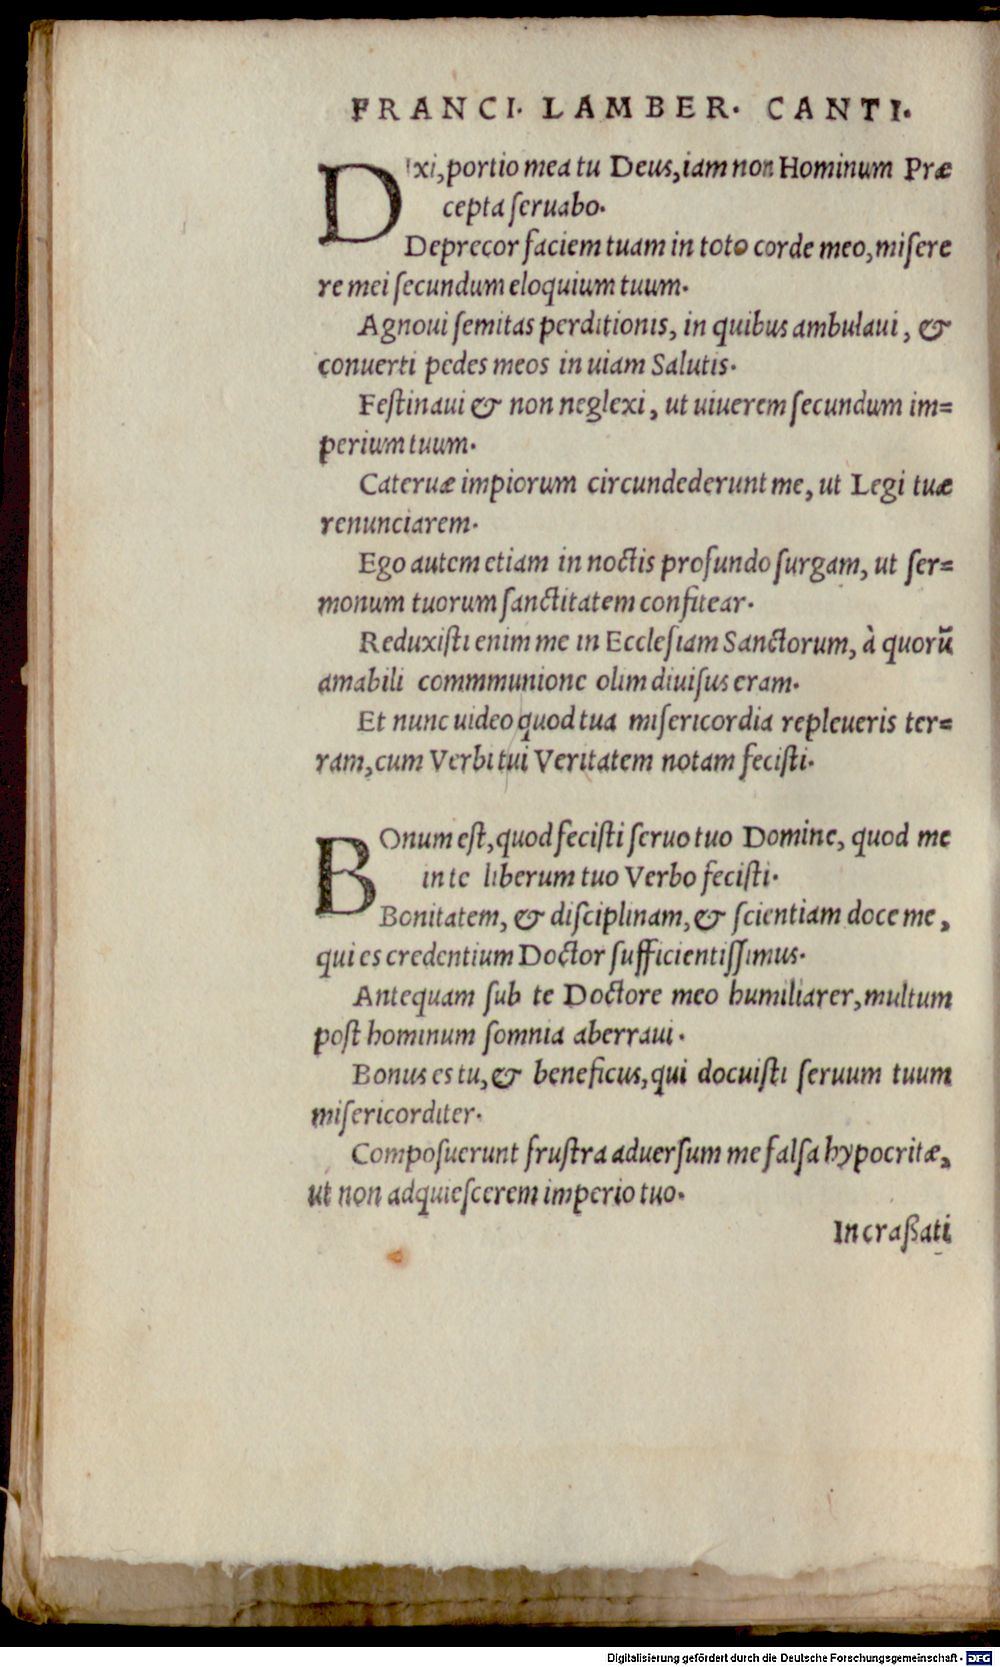 FRANCI. LAMBER. CANTI.
DIxi, portio mea tu Deus, iam non Hominum Præ
cepta ſeruabo.
Deprecor faciem tuam in toto corde meo, miſere
re mei ſecundum eloquium tuum.
Agnoui ſemitas perditionis, in quibus ambulaui, &
conuerti pedes meos in uiam Salutis.
Feſtinaui & non neglexi, ut uiuerem ſecundum im=
perium tuum.
Cateruæ impiorum circundederunt me, ut Legi tuæ
renunciarem.
Ego autem etiam in noctis profundo ſurgam, ut ſer=
monum tuorum ſanctitatem confitear.
Reduxiſti enim me in Eccleſiam Sanctorum, à quorū
amabili commmunione olim diuiſus eram.
Et nunc uideo quod tua miſericordia repleueris ter=
ram, cum Verbi tui Veritatem notam feciſti.
BOnum eſt, quod feciſti ſeruo tuo Domine, quod me
in te liberum tuo Verbo feciſti.
Bonitatem, & diſciplinam, & ſcientiam doce me,
qui es credentium Doctor ſufficientiſſimus.
Antequam ſub te Doctore meo humiliarer, multum
poſt hominum ſomnia aberraui.
Bonus es tu, & beneficus, qui docuiſti ſeruum tuum
miſericorditer.
Compoſuerunt fruſtra aduerſum me falſa hypocritæ,
ut non adquieſcerem imperio tuo.
Incraßati
Digitalisierung gefördert durch die Deutsche Forschungsgemeinschaft - DFG